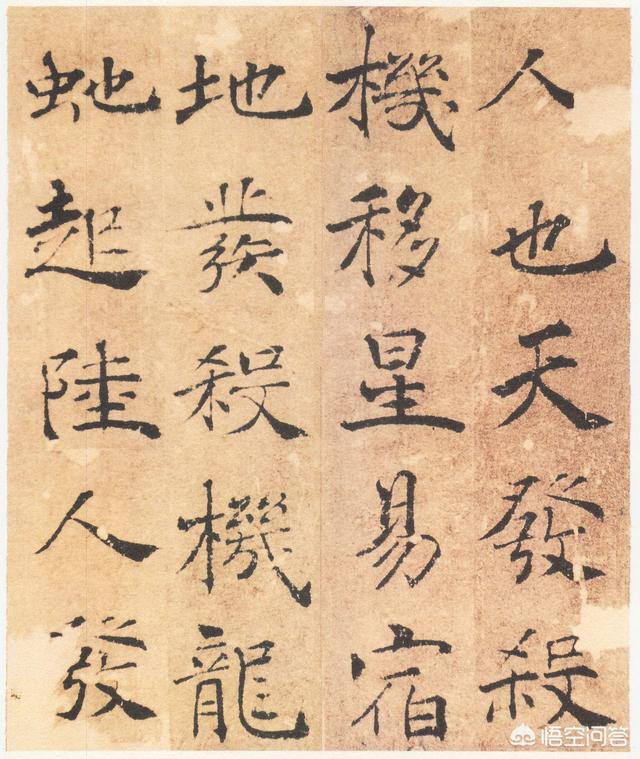 人也天發殺
機移星易宿
地發殺機龍
虵起陸人發
悟空问答